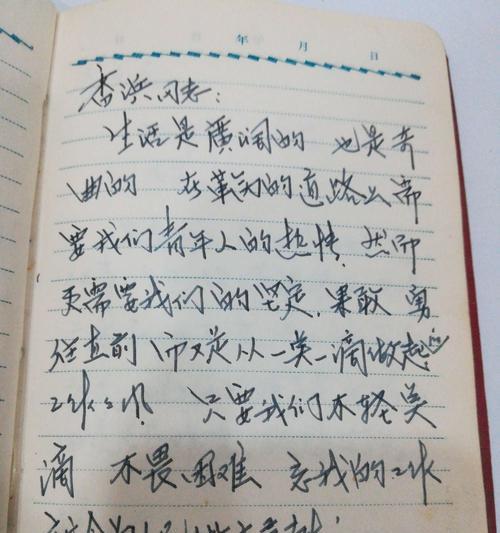 年 月 日
李浜同志：
生活是广阔的 也是弯
曲的 在革命的道路上需
要我们青年人的热情，然而
更需要我们的坚定，果敢 勇
往直前，而又是从一点一滴做起的
工作作风 只要我们不轻点
滴 不畏困难 我的工作